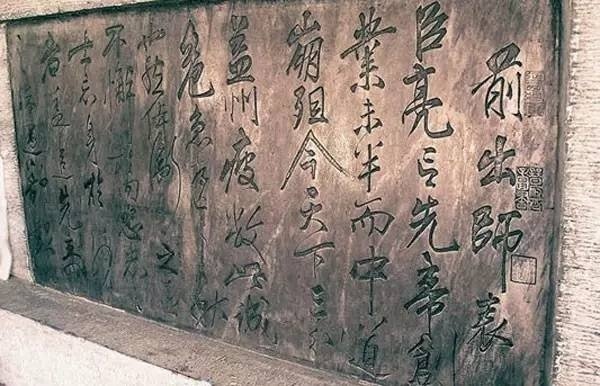 前出師表
臣亮言先帝創
業未半而中道
崩殂今天下三分
益州疲敝此誠
危急存
也然侍衛之臣
不懈於內忠志
士忘身於外
者蓋追先帝